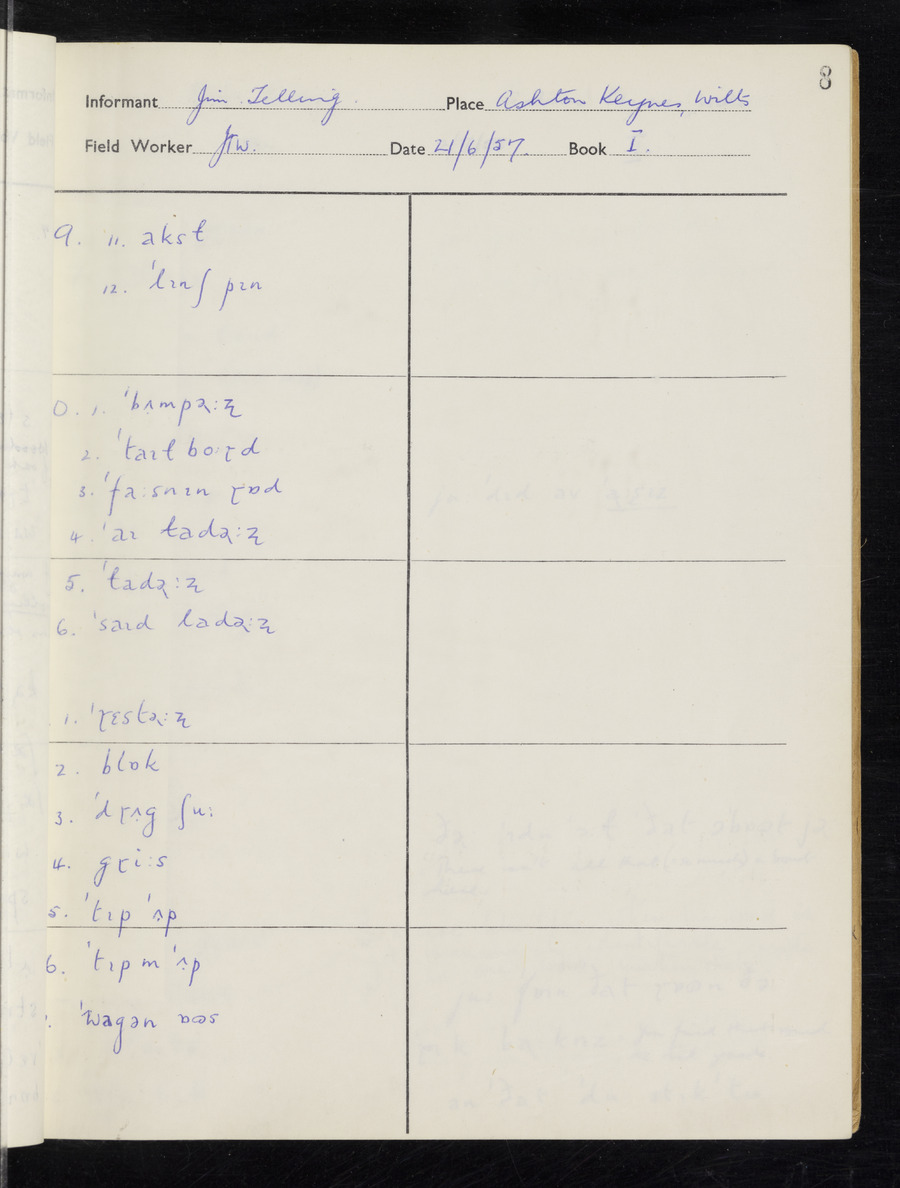 8
Informant Jim Telling. Place Ashton Keynes, Wilts
Field Worker JTW. Date 21/6/57. Book I.
9. 11. akst
12. ˈlɪnʃ pɪn
0. 1. ˈbʌmpəː
2. ˈtaɪt boːɽd
3. ˈfaːsnɪn ɽɒd
4. ˈaɪ ladəː
5. ˈladəː
6. ˈsaɪd ladəː
1. ˈɽɛstəː
2. blɒk
3. ˈdɽʌg ʃuː
4. gɽiːs
5. ˈtɪp ˈʌp
6. ˈtɪp m ˈʌp
ˈwagən ɒəs